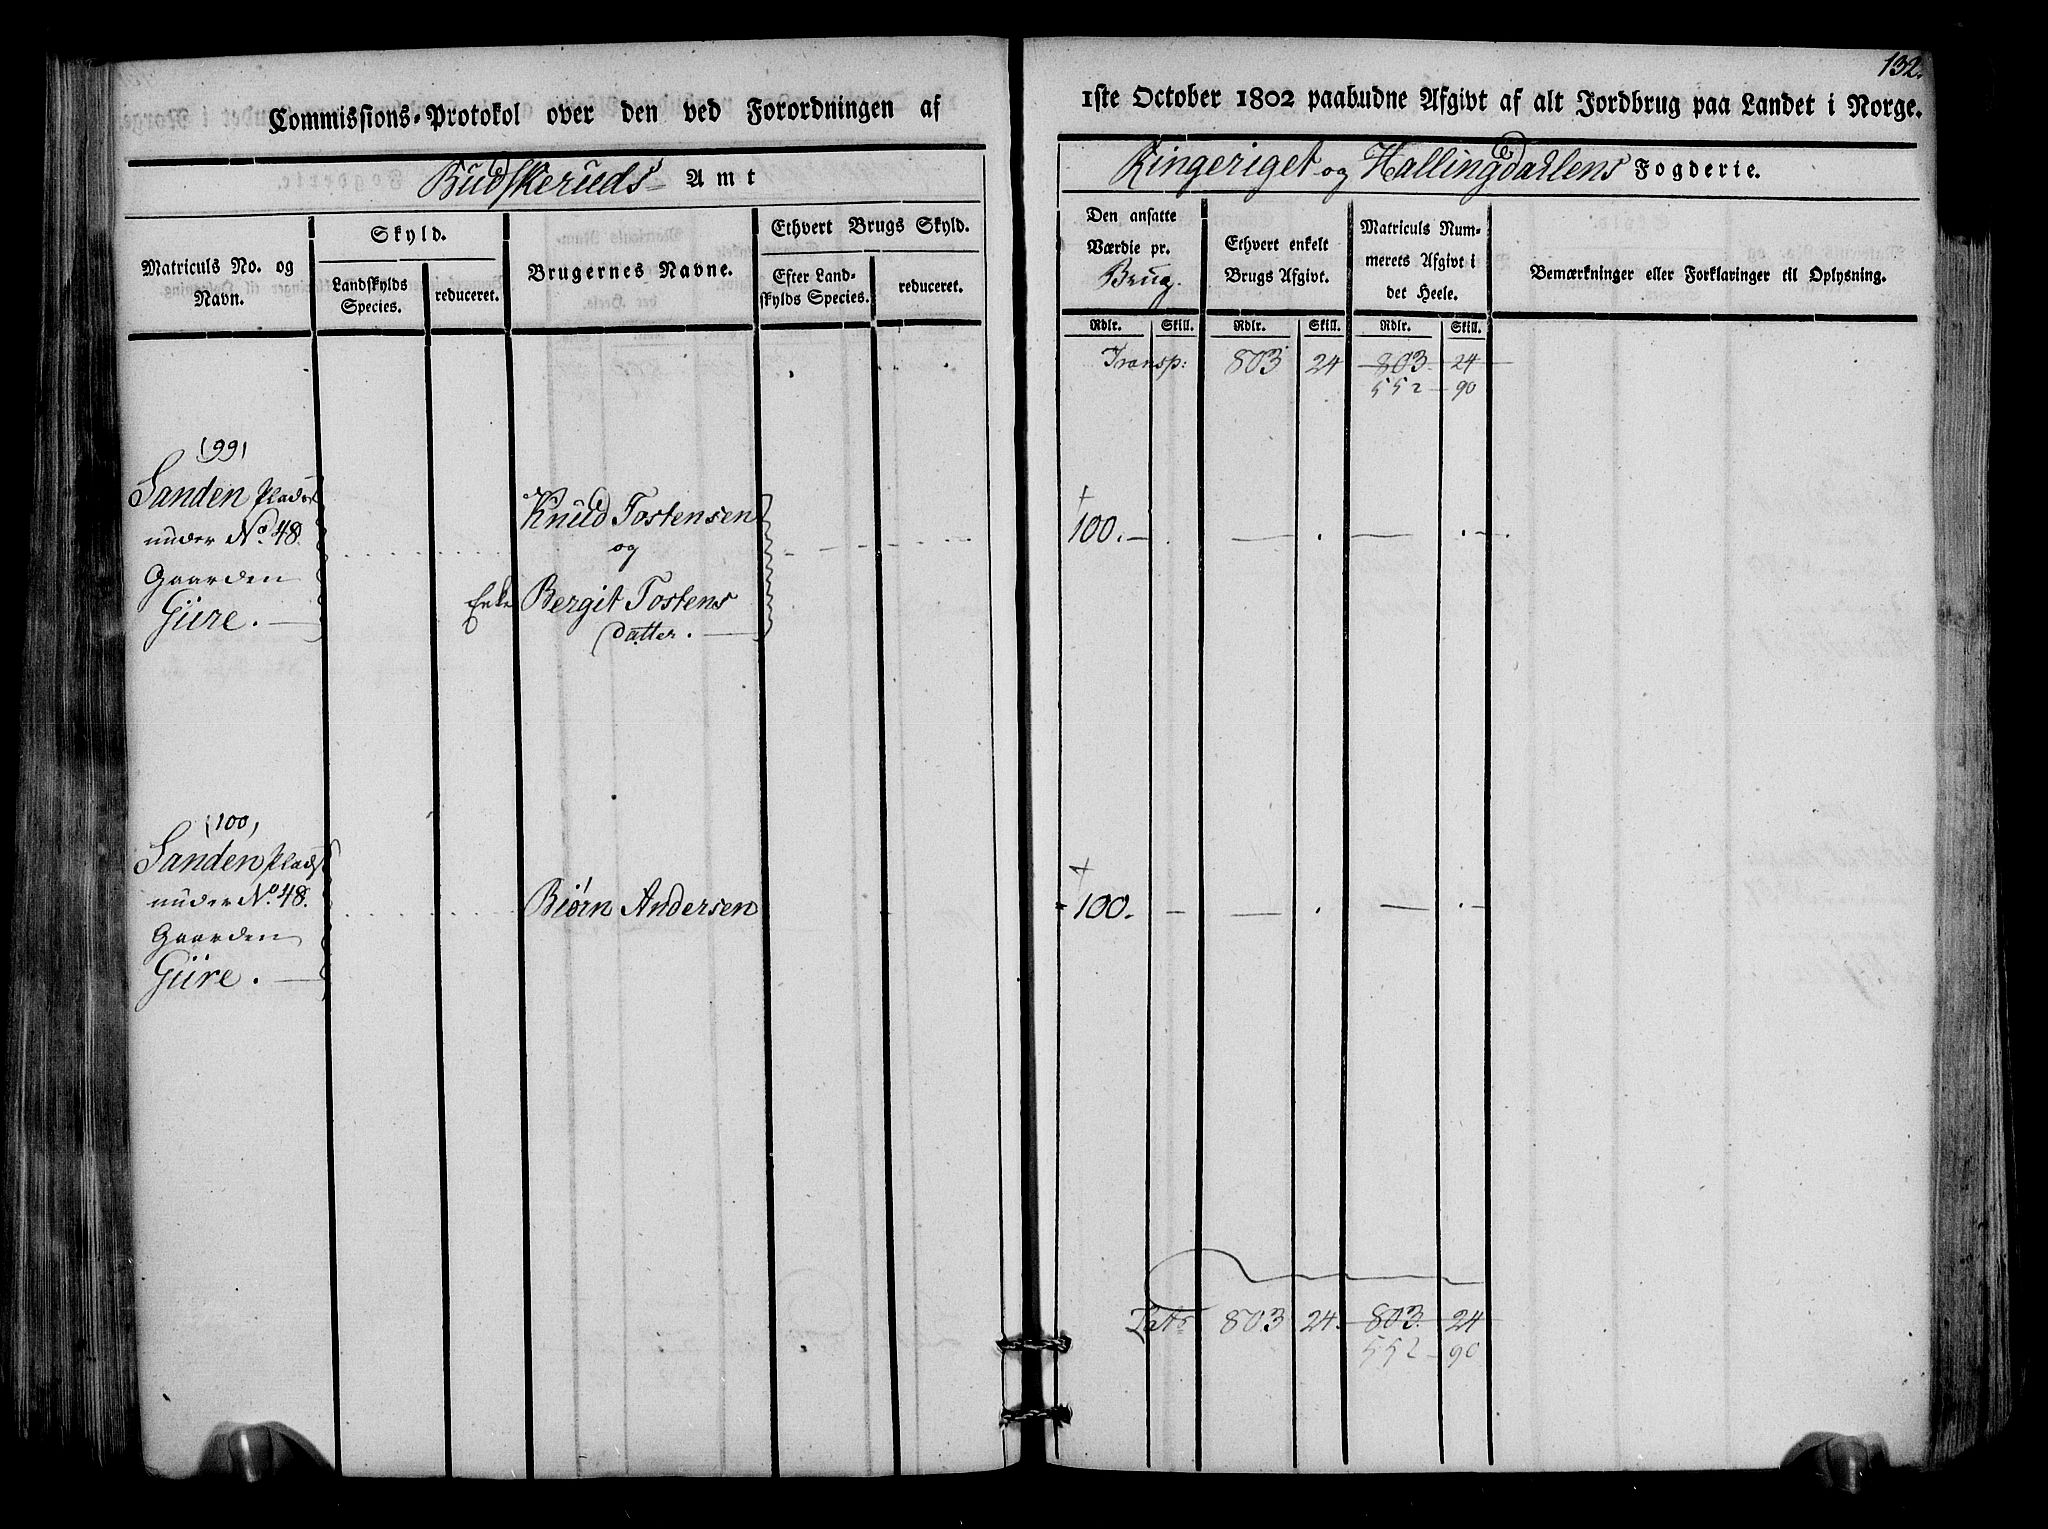 132.
Commissions-Protokol over den ved Forordningen af
1ste October 1802 paabudne Afgivt af alt Jordbrug paa Landet i Norge.
Budskeruds Amt
Ringeriget og Hallingdallens Fogderie.
Matriculs No. og
Navn.
Skyld.
Landskylds
Species.
reduceret.
Brugernes Navne.
Ethvert Brugs Skyld.
Efter Land-
skylds Species.
reduceret.
Den ansatte
Værdie pr.
Brug.
Rdlr. Skill.
Ethvert enkelt
Brugs Afgivt.
Rdlr. Skill.
Matriculs Num-
merets Afgivt i
det Heele.
Rdlr. Skill.
Bemærkninger eller Forklaringer til Oplysning.
Transp: 803 24 803 24
552 90
(99)
Sanden Plads
under No. 48.
Gaarden
Güre.
Knud Tostensen
og
Enke Bergit Tostens
datter.
+
100.
(100)
Sanden Plads
under No. 48.
Gaarden
Güre.
Biørn Andersen
+
100.
Lats 803 24. 803 24
552 90